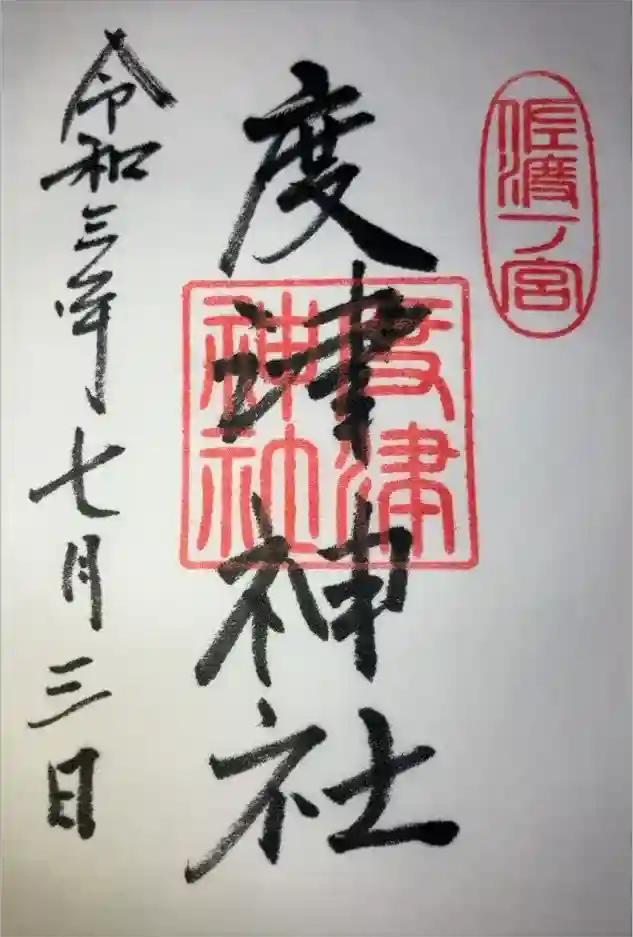 佐渡一ノ宮
度津神社
度津
神社
令和三年七月三日